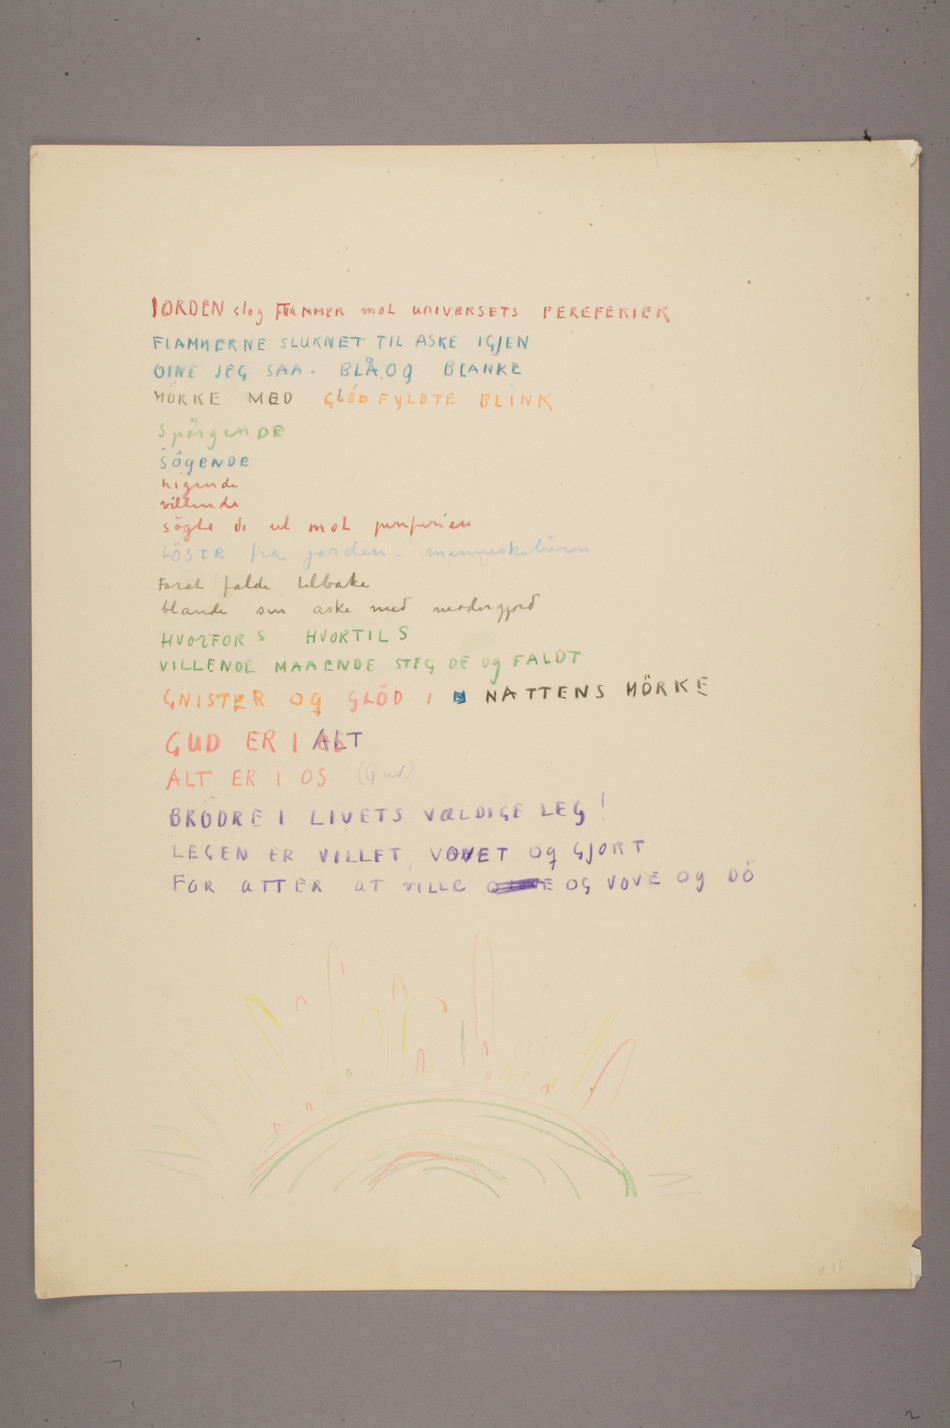 JORDEN slog FLAMMER mot UNIVERSETS PEREFERIER
FLAMMERNE SLUKNET TIL ASKE IGJEN
ÖINE JEG SAA - BLÅ OG BLANKE
MÖRKE MED GLÖDFYLDTE BLINK
SpörgenDE
SögeNDE
higende
villende
sögte de ut mot periferien
LÖSTE fra jorden - menneskebörn
Forat falde tilbake
blande sin aske med modergjord
HVORFOR S HVORTIL S
VILLENDE MAAENDE STEG DE og FALDT
GNISTER OG GLÖD I NATTENS MÖRKE
GUD ER I ALT
ALT ER I OS (Gud)
BRÖDRE I LIVETS VÆLDIGE LEG!
LEGEN ER VILLET, VOVET og GJORT
FOR ATTER AT VILLE OG VOVE og DÖ